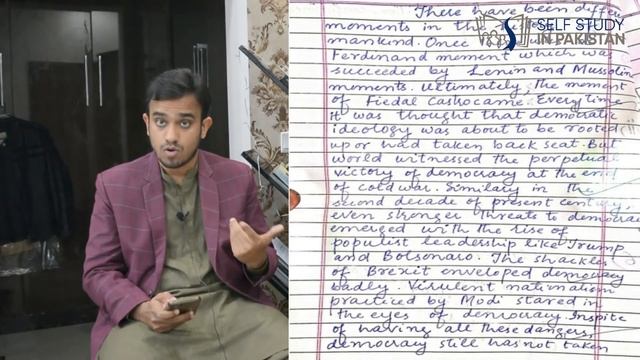 There have been differ
moments in the
mankind. Once
Ferdinand moment which was
succeeded by Lenin and Mussolin
moments. Ultimately, The moment
of Fiedal Cashocame. Everytime
it was thought that democratic
ideology was about to be rooted
up or had taken back seat. But
world witnessed the perpetual
victory of democracy at the end
of cold war. Similaly in the
second decade of present century,
even stronger threats to democra
emerged with the rise of
populist leadership like Trump
and Bolsonaro. The shackles
of Brexit enveloped democracy
badly. Virulent nationalism
practiced by Modi stared in
the eyes of democracy. Inspite
of having all these dangers,
democracy still has not taken
SELF STUDY
IN PAKISTAN